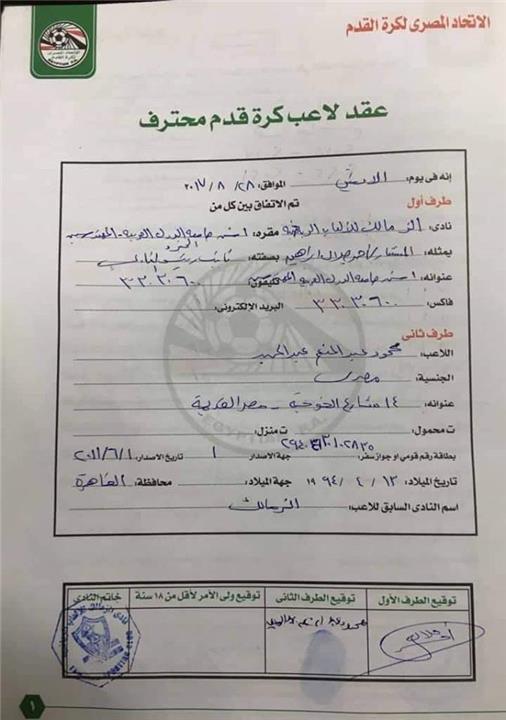 الاتحاد المصرى لكرة القدم
عقد لاعب كرة قدم محترف
إنه فى يوم: الاثنين الموافق: ٢٨/ ٨ / ٢٠١٧
طرف أول تم الاتفاق بين كل من
نادى: الزمالك للألعاب الرياضية مقره: ١ ش جامعة الدول العربية - المهندسين
يمثله: المستشار/ أحمد جلال ابراهيم بصفته: نائب رئيس النادى
عنوانه: ١ ش جامعة الدول العربية المهندسين تليفون: ٣٣٠٣٠٦٠٠
فاكس: ٣٣٠٣٠٦٠٠ البريد الإلكترونى:
طرف ثانى
اللاعب: محمود عبد المنعم عبد الحميد
الجنسية: مصرى
عنوانه: ١٤ شارع الخوخة - مصر القديمة
ت محمول: ت منزل:
بطاقة رقم قومى او جواز سفر: جهة الاصدار: ١ تاريخ الاصدار: ٢٠١١/٦/١
تاريخ الميلاد: ١٣ / ٤ / ١٩٩٤ جهة الميلاد: محافظة: القاهرة
اسم النادى السابق للاعب: الزمالك
توقيع الطرف الأول توقيع الطرف الثانى توقيع ولى الأمر لأقل من ١٨ سنة خاتم النادى
١